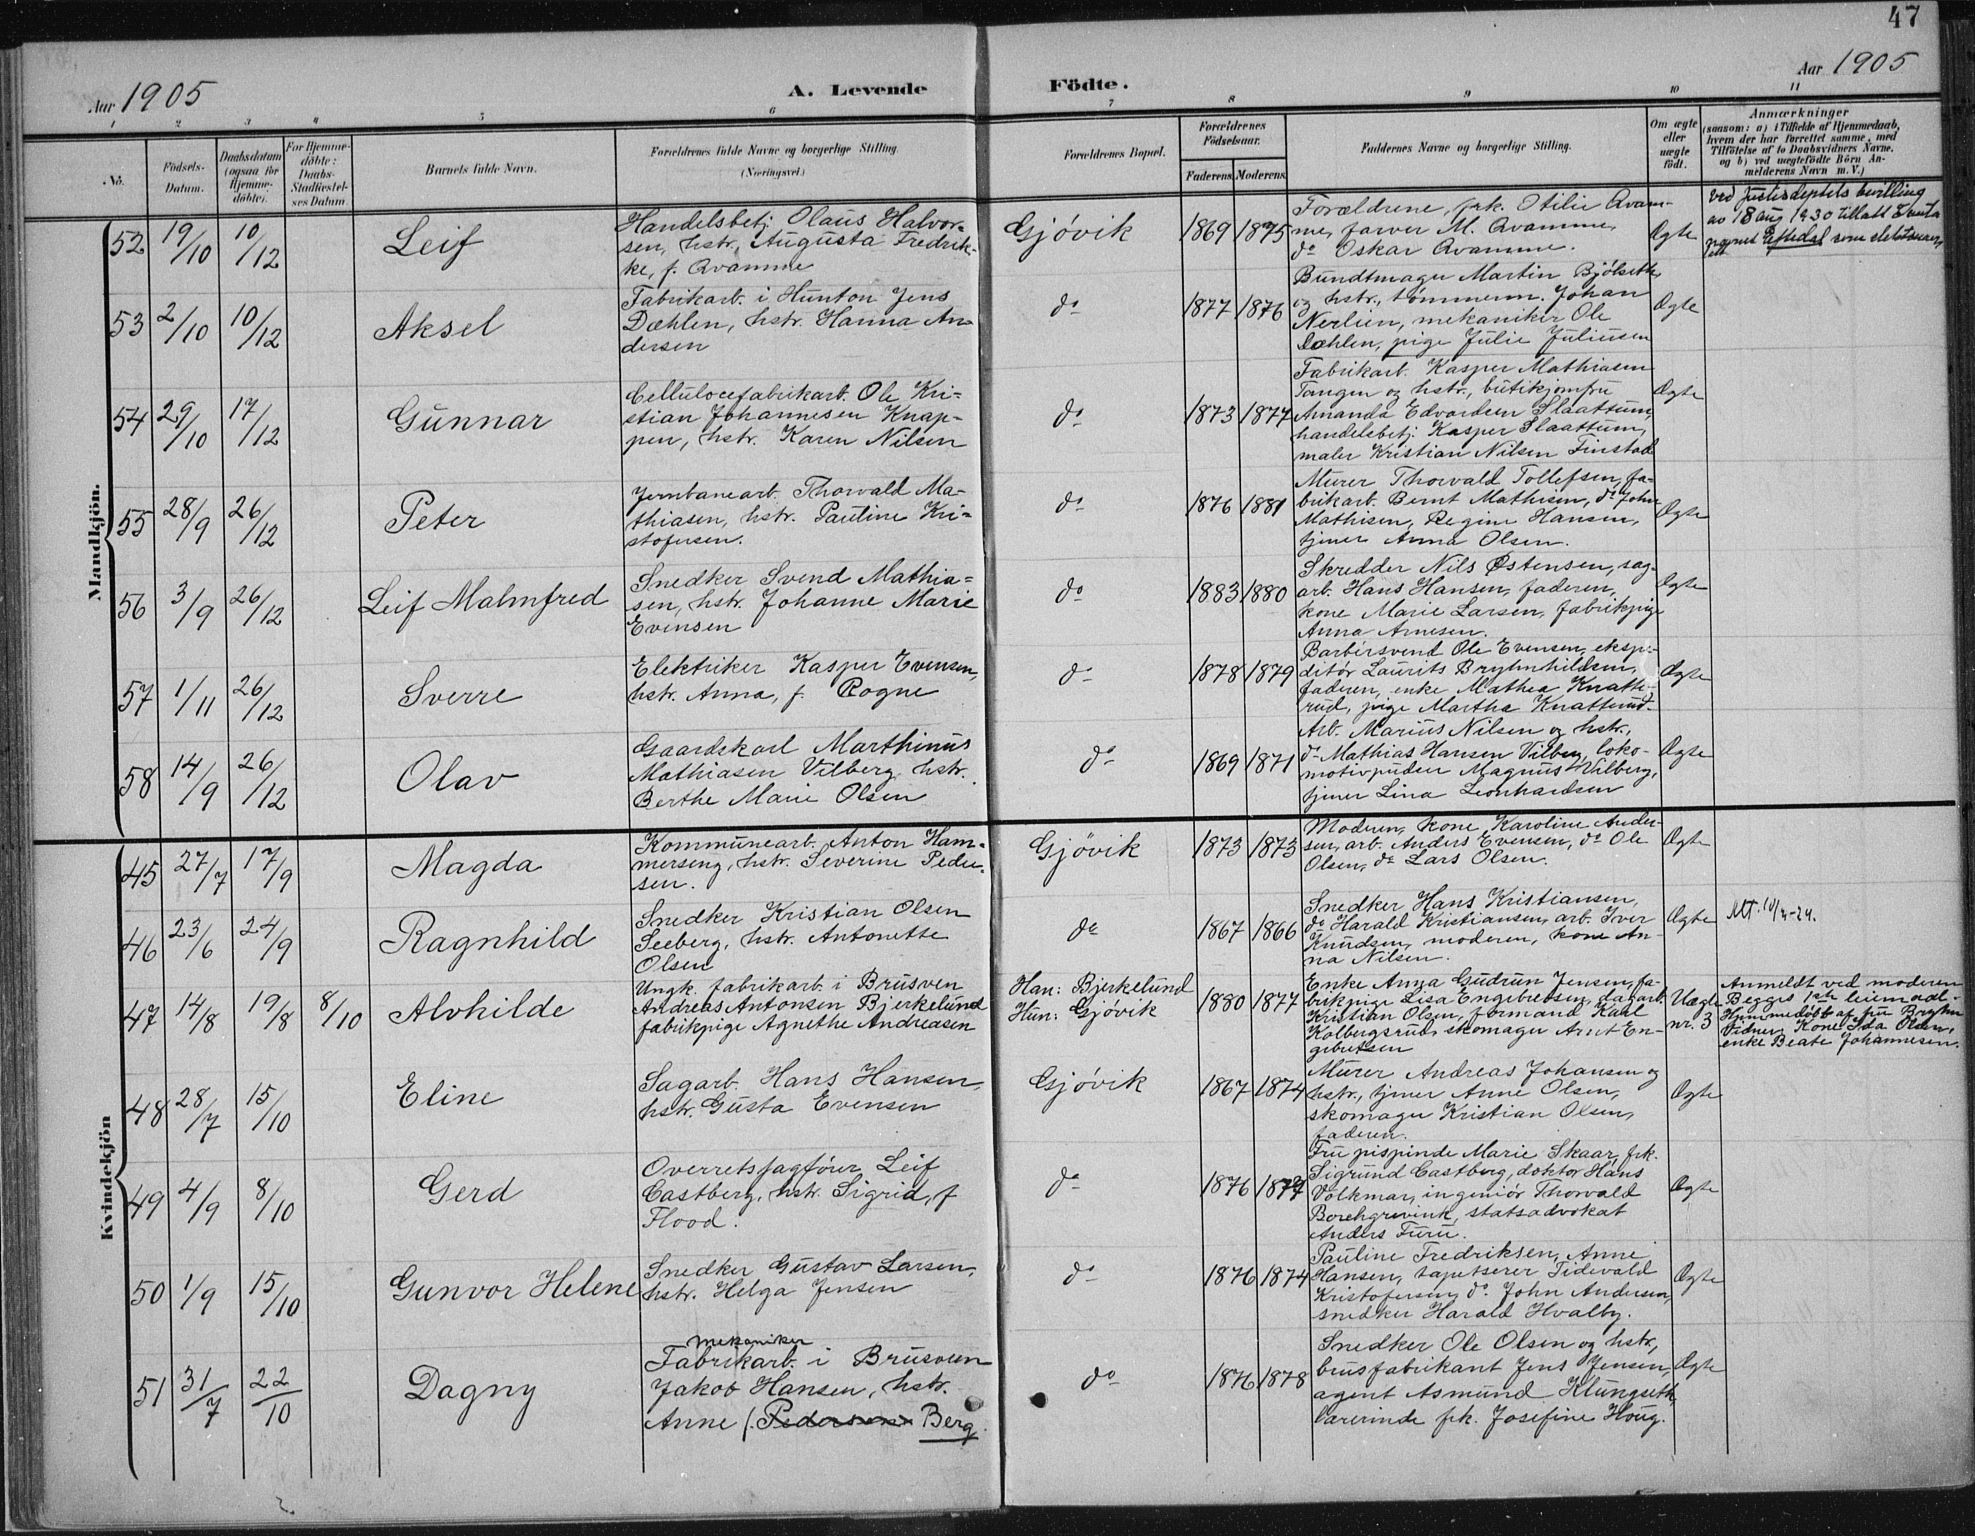 47
Aar 1905
A. Levende Födte.
Aar 1905
1 2 3 4 5 6 7 8 9 10 11
No.
Födsels-
Datum.
Daabsdatum
(ogsaa for
Hjemme-
döbte).
For Hjemme-
döbte:
Daabs-
Stadfæstel-
ses Datum.
Barnets fulde Navn.
Forældrenes fulde Navne og borgerlige Stilling.
(Næringsvei.)
Forældrenes Bopæl.
Forældrenes
Födselsaar.
Faderens. Moderens.
Faddernes Navne og borgerlige Stilling.
Om ægte
eller
uægte
födt.
Anmærkninger
(saasom: a) i Tilfælde af Hjemmedaab,
hvem der har forrettet samme, med
Tilföielse af to Daabsvidners Navne.
og b) ved uægtefödte Börn An-
melderens Navn m. V.)
Mandkjön.
52 19/10 10/12
Leif
Handelsbetj. Olaus Halvor-
sen, hstr. Augusta Fredrik-
ke, f. Qvamme
Gjøvik
1869 1875
Forældrene, frk. Otilie Qvam-
me, farver M. Qvamme,
do Oskar Qvamme.
Ægte
Ved Justisdeptets bevilling
av 18 aug 1930 tillatt
navnet Eftedal som slektsnavn
53 2/10 10/12
Aksel
Fabrikarb. i Hunton Jens
Dæhlen, hstr. Hanna An-
dersen
do
1877 1876
Bundtmager Martin Bjølseth
og hstr., tømmerm. Johan
Nerlien, mekaniker Ole
Dæhlen, pige Julie Juliusen
Ægte
54 29/10 17/12
Gunnar
Cellulocefabrikarb. Ole Kri-
stian Johannesen Knap-
pen, hstr. Karen Nilsen
do
1873 1877
Fabrikarb. Kasper Mathiasen
Tangen og hstr., butikjomfru
Amanda Edvardsen Slaattum,
handelsbetj. Kasper Slaattum,
maler Kristian Nilsen Finstad
Ægte
55 28/9 26/12
Peter
Jernbanearb. Thorvald Ma-
thiasen, hstr. Pauline Kri-
stofersen.
do
1876 1881
Murer Thorvald Tollefsen, fa-
brikarb. Bernt Mathisen, do John
Mathisen, Regine Hansen,
tjener Anna Olsen.
Ægte
56 3/9 26/12
Leif Malmfred
Snedker Svend Mathia-
sen, hstr. Johanne Marie
Evensen
do
1883 1880
Skredder Nils Østensen, sag-
arb. Hans Hansen, faderen,
kone Marie Larsen, fabrikpige
Anna Arnesen.
Ægte
57 1/11 26/12
Sverre
Elektriker Kasper Evensen,
hstr. Anna, f. Rogne
do
1878 1879
Barbersvend Ole Evensen, ekspe-
ditør Laurits Brynhildsen,
faderen, enke Mathea Knatte-
rud, pige Martha Knatterud.
Ægte
58 14/9 26/12
Olav
Gaardskarl Marthinus
Mathiasen Vilberg, hstr.
Berthe Marie Olsen
do
1869 1871
Arb. Marius Nilsen og hstr.,
do Mathias Hansen Vilberg, loko-
motivpudser Magnus Vilberg,
tjener Lina Leonhardsen
Ægte
Kvindekjön
45 27/7 17/9
Magda
Kommunearb. Anton Ham-
merseng, hstr. Severine Peder-
sen.
Gjøvik
1873 1873
Moderen, kone Karoline Ander-
sen, arb. Anders Evensen, do Ole
Olsen, do Lars Olsen.
Ægte
46 23/6 24/9
Ragnhild
Snedker Kristian Olsen
Seeberg, hstr. Antonette
Olsen
do
1867 1866
Snedker Hans Kristiansen,
do Harald Kristiansen, arb. Iver
Knudsen, moderen, kone An-
na Nilsen.
Ægte
47 14/8 19/8 8/10
Alvhilde
Ungk. fabrikarb. i Brusven
Andreas Antonsen Bjerkelund
fabrikpige Agnethe Andreasen
Han: Bjerkelund
Hun: Gjøvik
1880 1877
Enke Anna Gudrun Jensen, fa-
brikpige Lisa Engebretsen, sagarb.
Kristian Olsen, formand Karl
Kolbergsrud, skomager Arnt En-
gebretsen
Uægte
nr. 3
Anmeldt ved moderen
Begges 1ste leiermaal.
Hjemmedøbt af fru Bryhn
Vidner: Kone Ida Olsen,
enke Beate Johannesen.
48 28/7 15/10
Eline
Sagarb. Hans Hansen,
hstr. Gusta Evensen
Gjøvik
1867 1874
Murer Andreas Johansen og
hstr., tjener Anne Olsen,
skomager Kristian Olsen,
faderen.
Ægte
49 4/9 8/10
Gerd
Overretssagfører Leif
Castberg, hstr. Sigrid, f
Flood.
do
1876
Fru Marie Skaar, frk.
Sigrund Castberg, doktor Hans
Volkmar, ingeniør Thorvald
Borchgrevink, statsadvokat
Anders Furu.
Ægte
50 1/9 15/10
Gunvor Helene
Snedker Gustav Larsen,
hstr. Helga Jensen
do
1876 1874
Pauline Fredriksen, Anne
Hansen, tapetserer Tidevald
Kristofersen, do John Andersen,
snedker Harald Hvalby.
Ægte
51 31/7 22/10
Dagny
mekaniker
Fabrikarb. i Brusveen
Jakob Hansen, hstr.
Anne f. Pedersen Berg.
do
1876 1878
Snedker Ole Olsen og hstr.,
brusfabrikant Jens Jensen,
agent Asmund Klungseth,
lærerinde frk. Josefine Houg.
Ægte